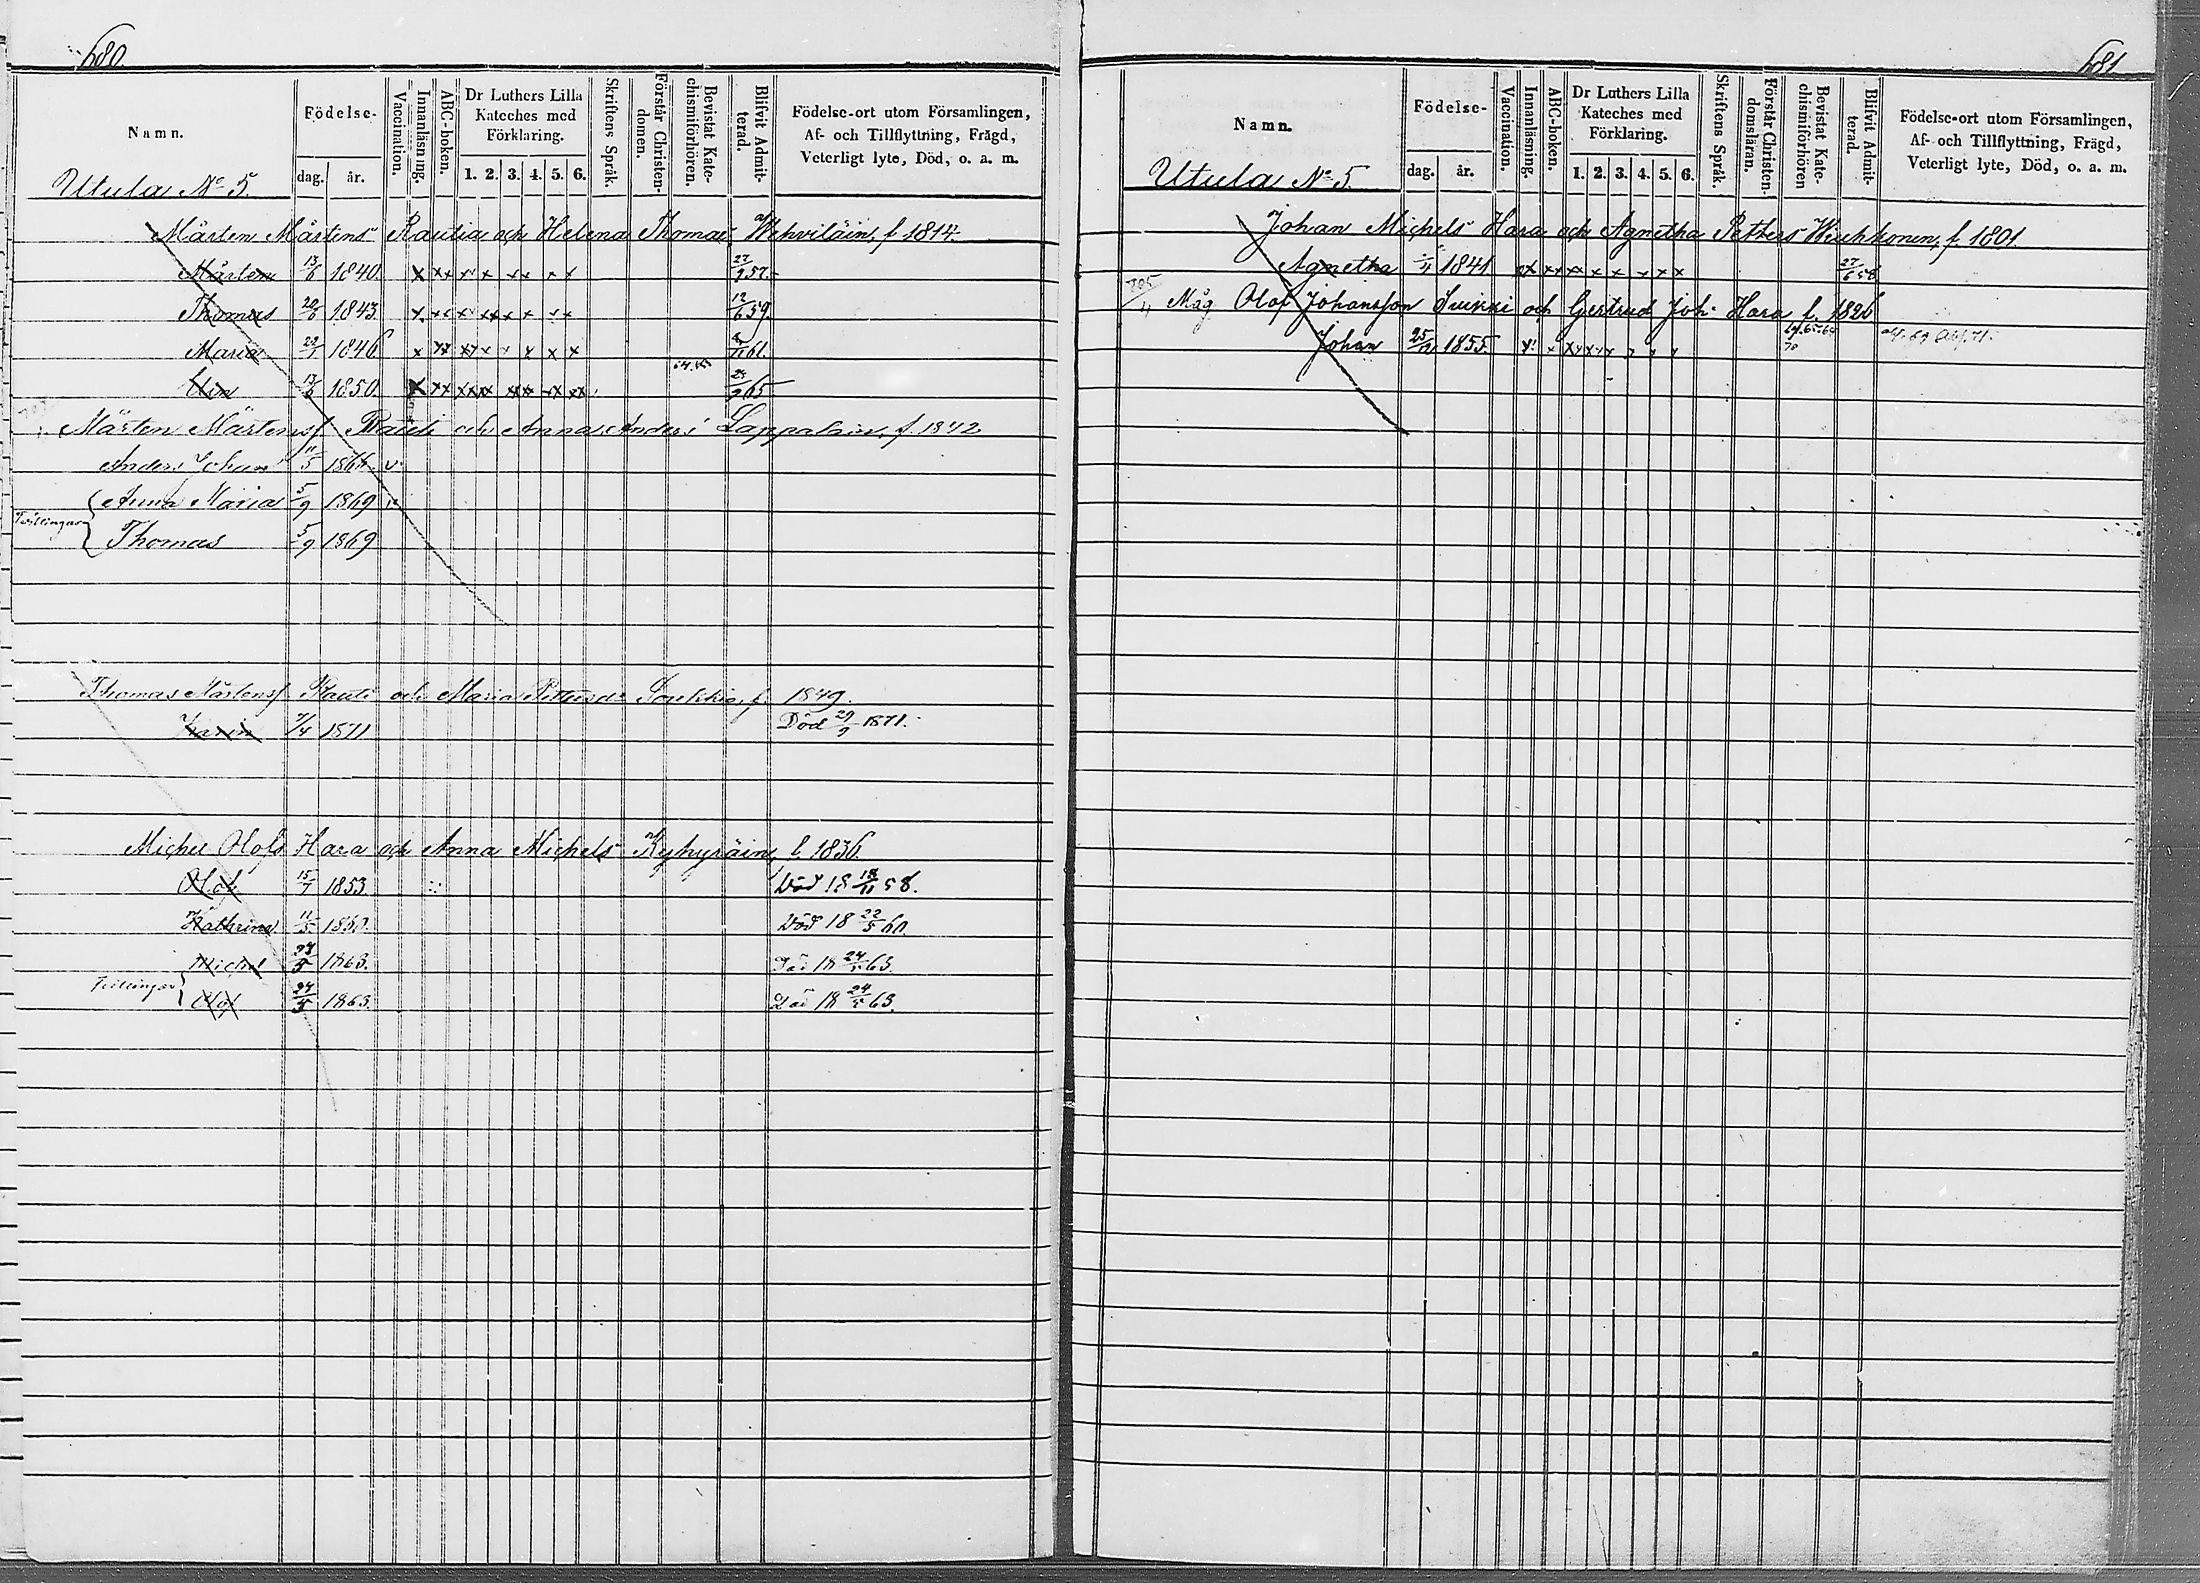 680.
Namn. Födelse- Vaccination. Innanläsning. ABC-boken. Dr Luthers Lilla Kateches med Förklaring. Skriftens Språk. Förstår Christendomen. Bevistat Katechismiförhören. Blifvit Admitterad. Födelse-ort utom Församlingen, Af- och Tillflyttning, Frägd, Veterligt lyte, Död, o. a. m.
dag. år. 1. 2. 3. 4. 5. 6.
Utula No 5.
Mårten Mårtens Rautia och Helena Thomas Wehviläin, f. 1814.
Mårten 13/6 1840. x xx x x xx x x 57.
Thomas 20/6 1843. 12/6 59.
Maria 1846 61.
1850. 65
Mårten Mårtensf Rauti och Anna Anders Lappalain, f. 1842
Anders Johan 11/5 v.
Tvillingar
Anna Maria 5/9 1869 v
Thomas 5/9 1869
Thomas Mårtensf Rauti och Maria f. 1849.
Karin 7/4 1871 Död 29/9 1871.
Michel Olofs Hara och Anna Michels Kyhyräin, f. 1836.
Olof 15/7 1853. Död 18 18/11 58.
Kathrina 11/5 1860. Död 18 22/5 60.
Tvillingar
Michel 24/5 1863. Död 18 24/5 63.
Olof 24/5 1863. Död 18 24/5 63.
681
Namn. Födelse- Vaccination. Innanläsning. ABC-boken. Dr Luthers Lilla Kateches med Förklaring. Skriftens Språk. Förstår Christendomsläran. Bevistat Katechismiförhören Blifvit Admitterad. Födelse-ort utom Församlingen, Af- och Tillflyttning, Frägd, Veterligt lyte, Död, o. a. m.
dag. år. 1. 2. 3. 4. 5. 6.
Utula No 5.
Johan Michels Hara och Agnetha Petters f. 1801.
Agnetha 1841. 27/6 58
Måg Olof Johansson Suikki och Gertrud Joh. Hara f. 1826
Johan 25/12 1855.